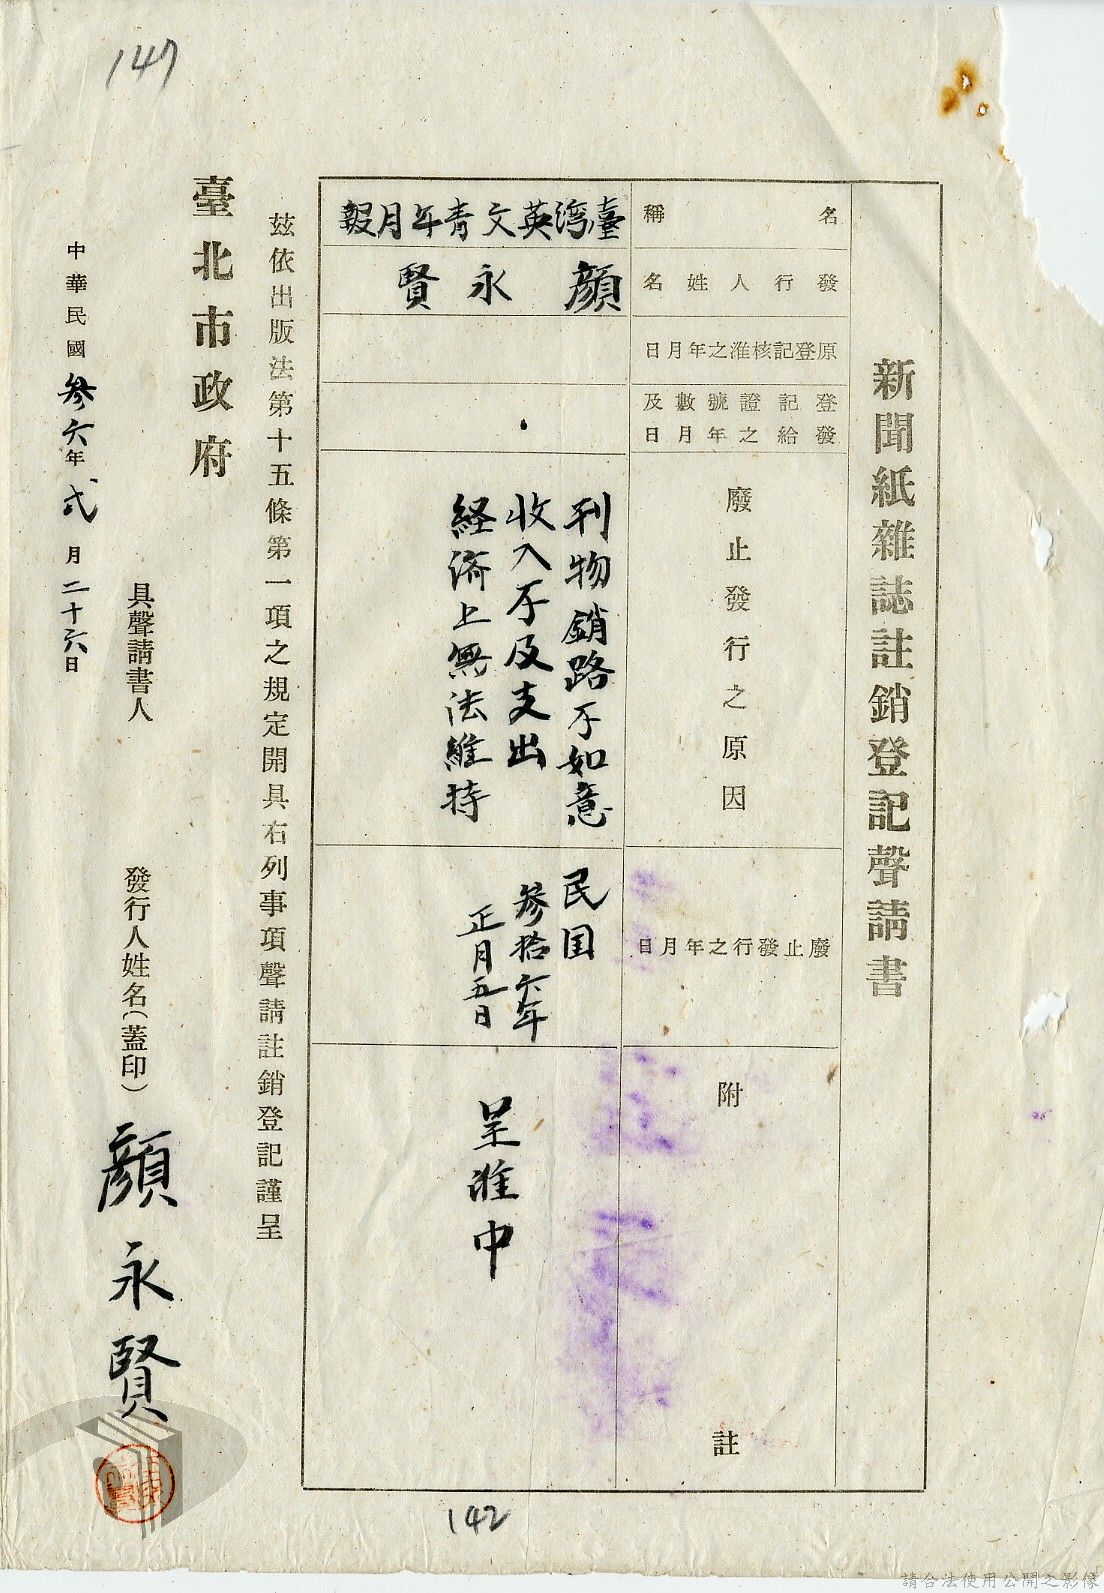 147
新聞紙雜誌註銷登記聲請書
名稱
臺湾英文青年月報
發行人姓名
顏永賢
原登記核准之年月日
登記證號數及
發給之年月日
廢止發行之原因
刊物銷路不如意
收入不及支出
経済上無法維持
廢止發行之年月日
民国
參拾六年
正月五日
附註
呈准中
茲依出版法第十五條第一項之規定開具右列事項聲請註銷登記謹呈
臺北市政府
具聲請書人
發行人姓名(蓋印)
顏永賢
中華民國參六年弍月二十六日
142
請合法使用公開之影像